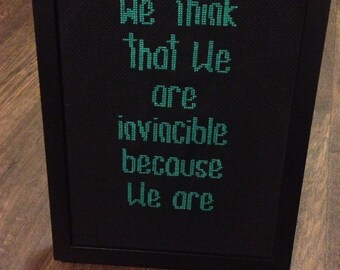 We think
that We
are
invincible
because
We are